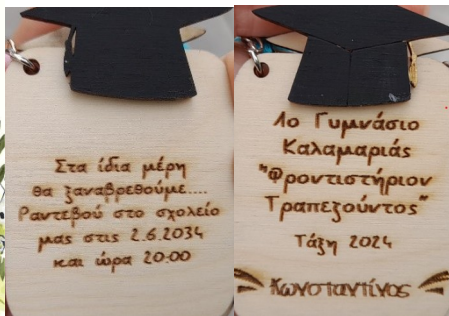 Στα ίδια μέρη
θα ξαναβρεθούμε....
Ραντεβού στο σχολείο
μας στις 2.6.2034
και ώρα 20:00
1ο Γυμνάσιο
Καλαμαριάς
"Φροντιστήριον
Τραπεζούντος"
Τάξη 2024
Κωνσταντίνος